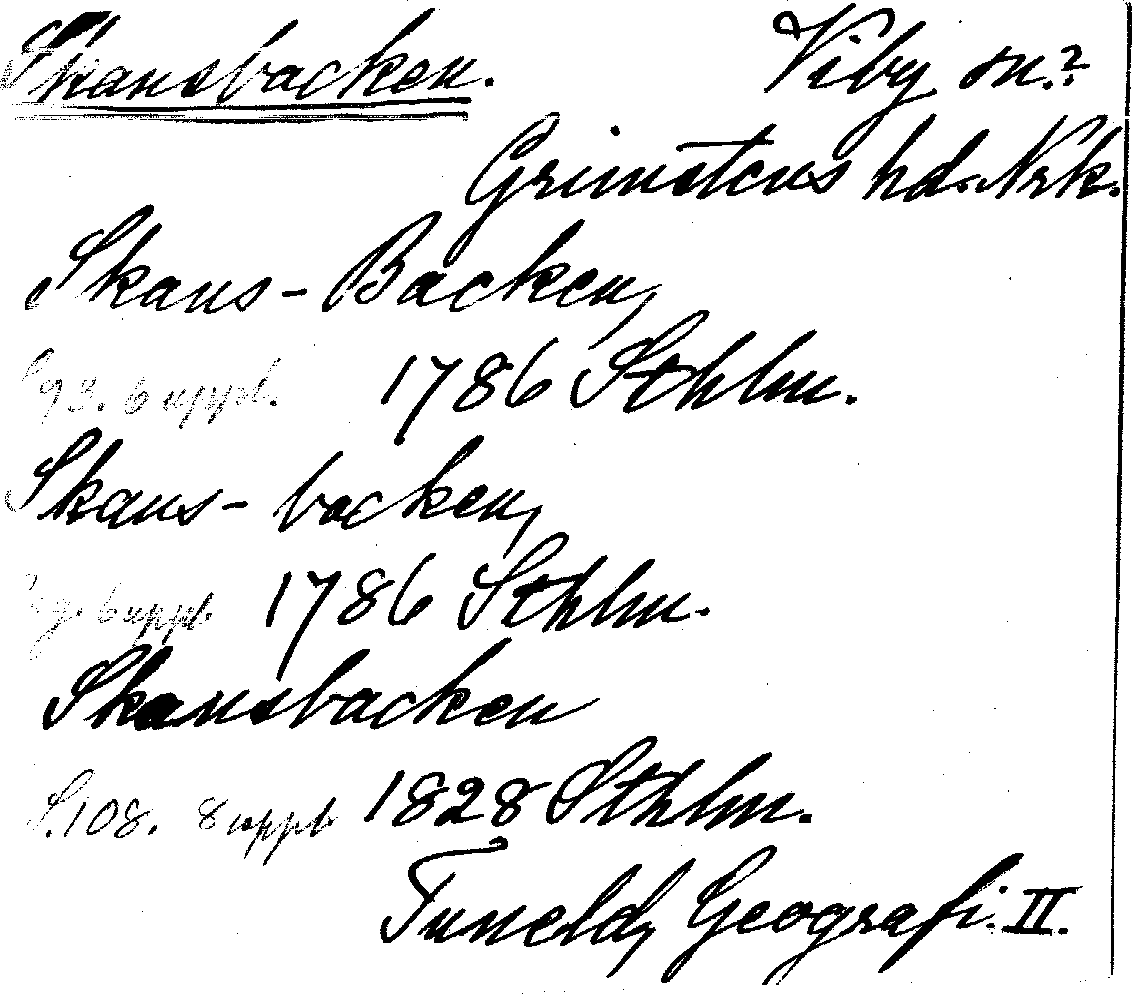 Skansbacken. Viby sn.?
Grimstens hd. Nrk.
Skans-Backen,
S. 93. 6 uppl. 1786 Sthlm.
Skans-backen,
6 uppl. 1786 Sthlm.
Skansbacken
S. 108. 8 uppl. 1828 Sthlm.
Tuneld, Geografi. II.